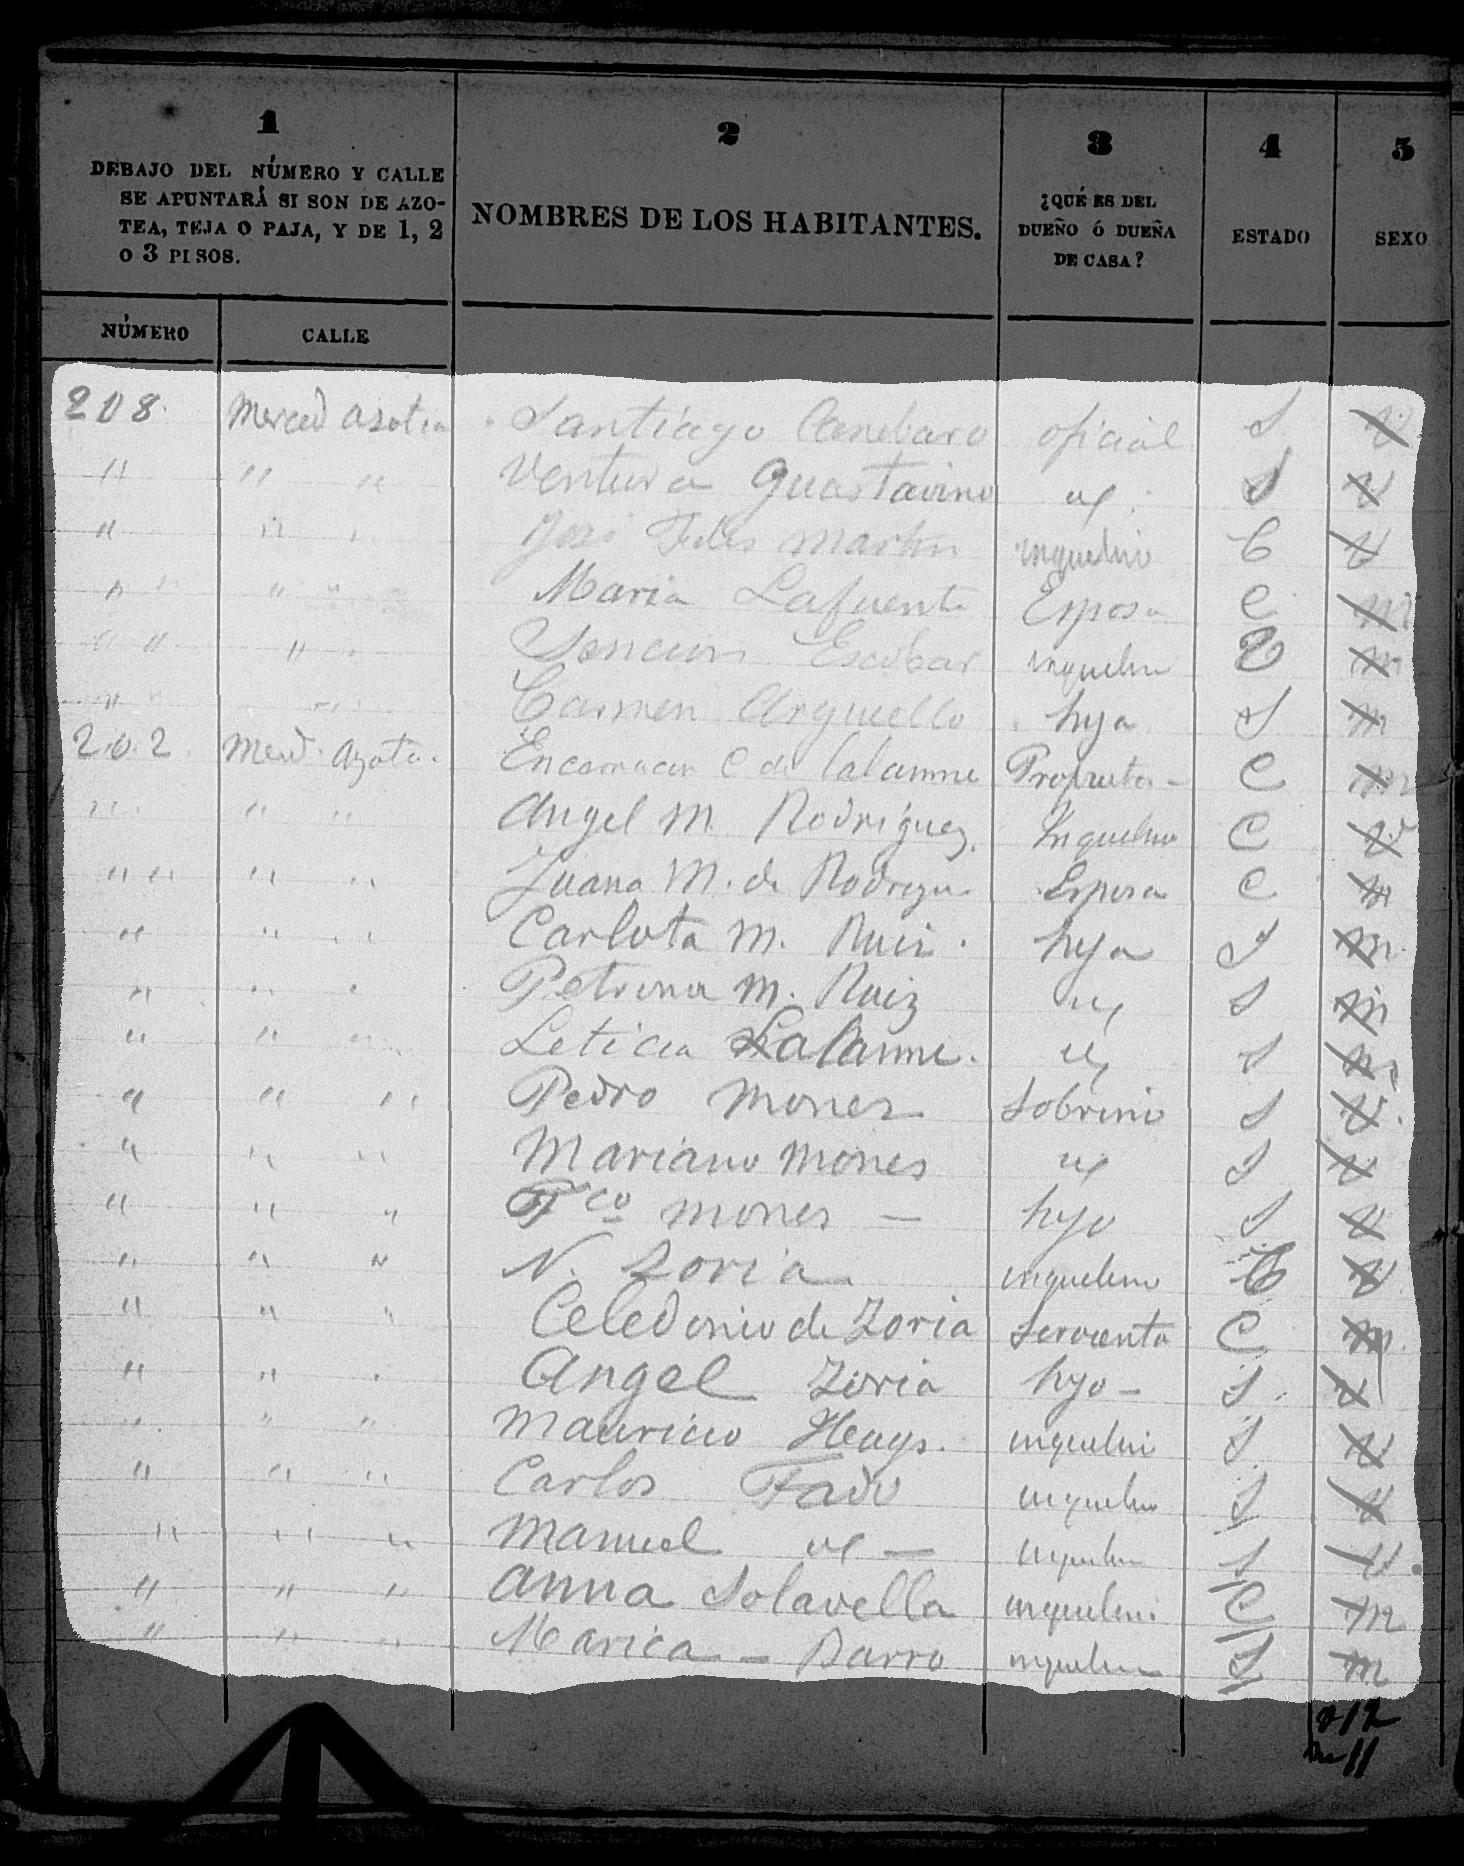 1 2 3 4 5
DEBAJO DEL NÚMERO Y CALLE
SE APUNTARÁ SI SON DE AZO-
TEA, TEJA O PAJA, Y DE 1, 2
O 3 PISOS.
NOMBRES DE LOS HABITANTES.
¿QUÉ ES DEL
DUEÑO Ó DUEÑA
DE CASA?
ESTADO
SEXO
NÚMERO CALLE
208 Merced azotea Santiago Canebaro oficial S V
" " " Ventura Guastavino S V
" " José Martin inquilino C V
" " " Maria Lafuente Esposa C m
" " " " Escobar inquelin m
" " " Carmen Arguello hija S m
202 azotea Encarnacion C de Lalanne C m
" " " Angel M. Rodriguez Inquelino C V
" " " " Juana M. de Rodrigu Esposa C m
" " " Carlota M. Ruiz hija S m
" " " Petrona M. Ruiz S m
" " " Leticia Lalanne S m
" " " Pedro Mones Sobrino S V
" " " Mariano Mones S V
" " " Fco Mones — hijo S V
" " " N. Zoria inquelino C V
" " " Celedonio de Zoria Servienta C m
" " " Angel Zoria hijo — S V
" " " Mauricio Heays inquelin S V
" " " Carlos Fado inquelin S V
" " " Manuel — inquelin S V
" " " Anna Solavella inquelin C m
" " " Marica — Barro inquelin S m
V 12
m 11